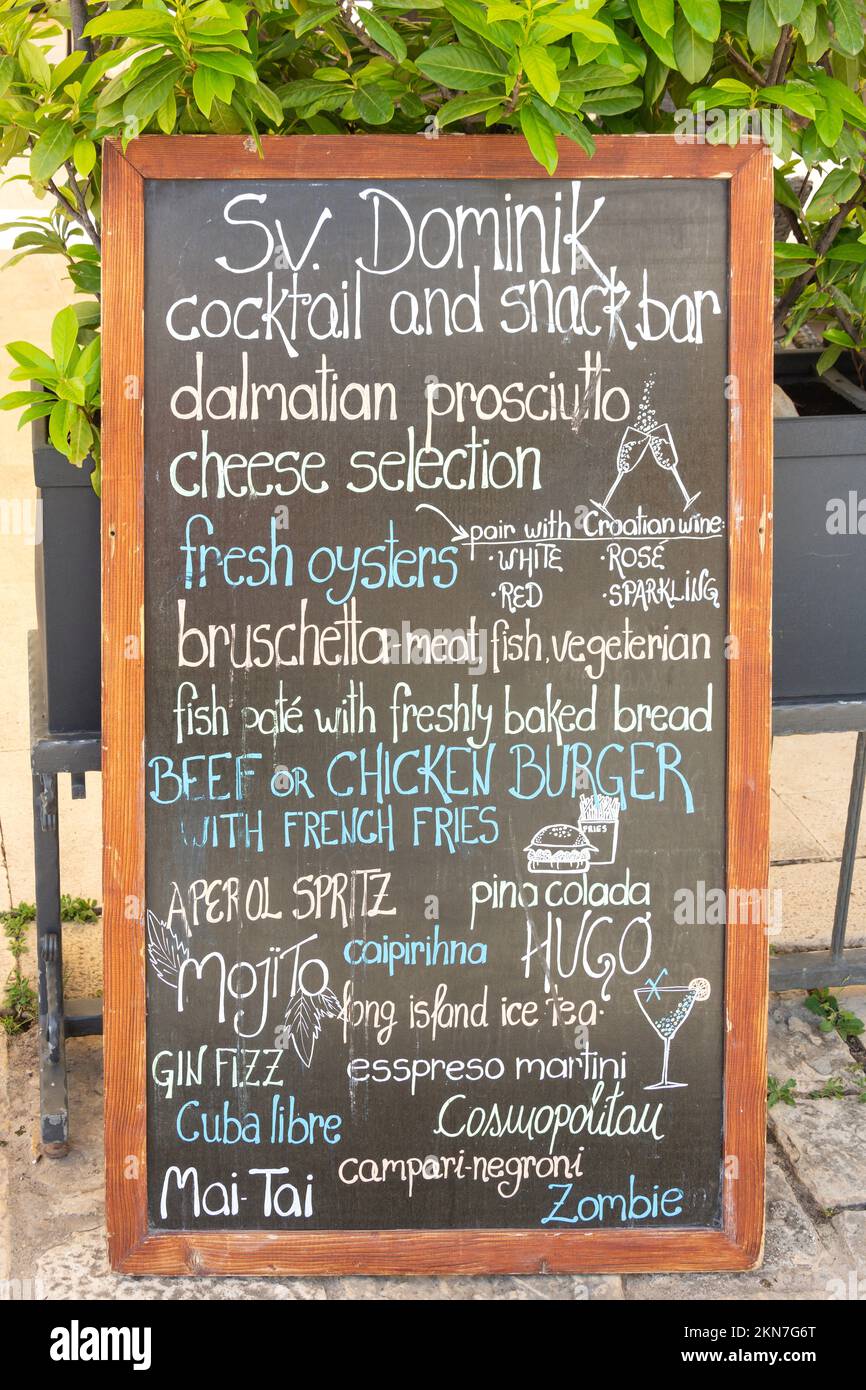 Sv. Dominik
cocktail and snack bar
dalmatian prosciutto
cheese selection
pair with Croatian wine:
fresh oysters
·WHITE ·ROSÉ
·RED ·SPARKLING
bruschetta-meat, fish, vegeterian
fish paté with freshly baked bread
BEEF OR CHICKEN BURGER
WITH FRENCH FRIES
FRIES
APEROL SPRITZ pina colada
MOJITO caipirihna HUGO
long island ice tea·
GIN FIZZ esspreso martini
Cuba libre Cosmopolitan
campari-negroni
Mai-Tai Zombie
alamy
Image ID: 2KN7G6T
www.alamy.com